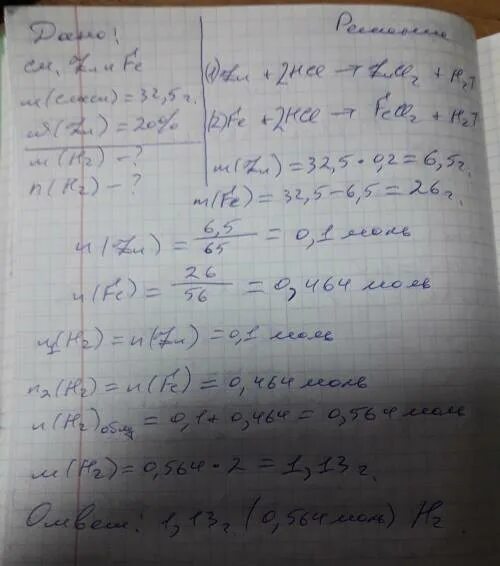 Дано:
см. Zn и Fe
m(смеси) = 32,5 г.
ω(Zn) = 20%
m(H₂) - ?
n(H₂) - ?
Решение
(1) Zn + 2HCl → ZnCl₂ + H₂↑
(2) Fe + 2HCl → FeCl₂ + H₂↑
m(Zn) = 32,5 · 0,2 = 6,5 г.
m(Fe) = 32,5 - 6,5 = 26 г.
n(Zn) = 6,5/65 = 0,1 моль
n(Fe) = 26/56 = 0,464 моль
n₁(H₂) = n(Zn) = 0,1 моль
n₂(H₂) = n(Fe) = 0,464 моль
n(H₂)общ = 0,1 + 0,464 = 0,564 моль
m(H₂) = 0,564 · 2 = 1,13 г.
Ответ: 1,13 г (0,564 моль) H₂.